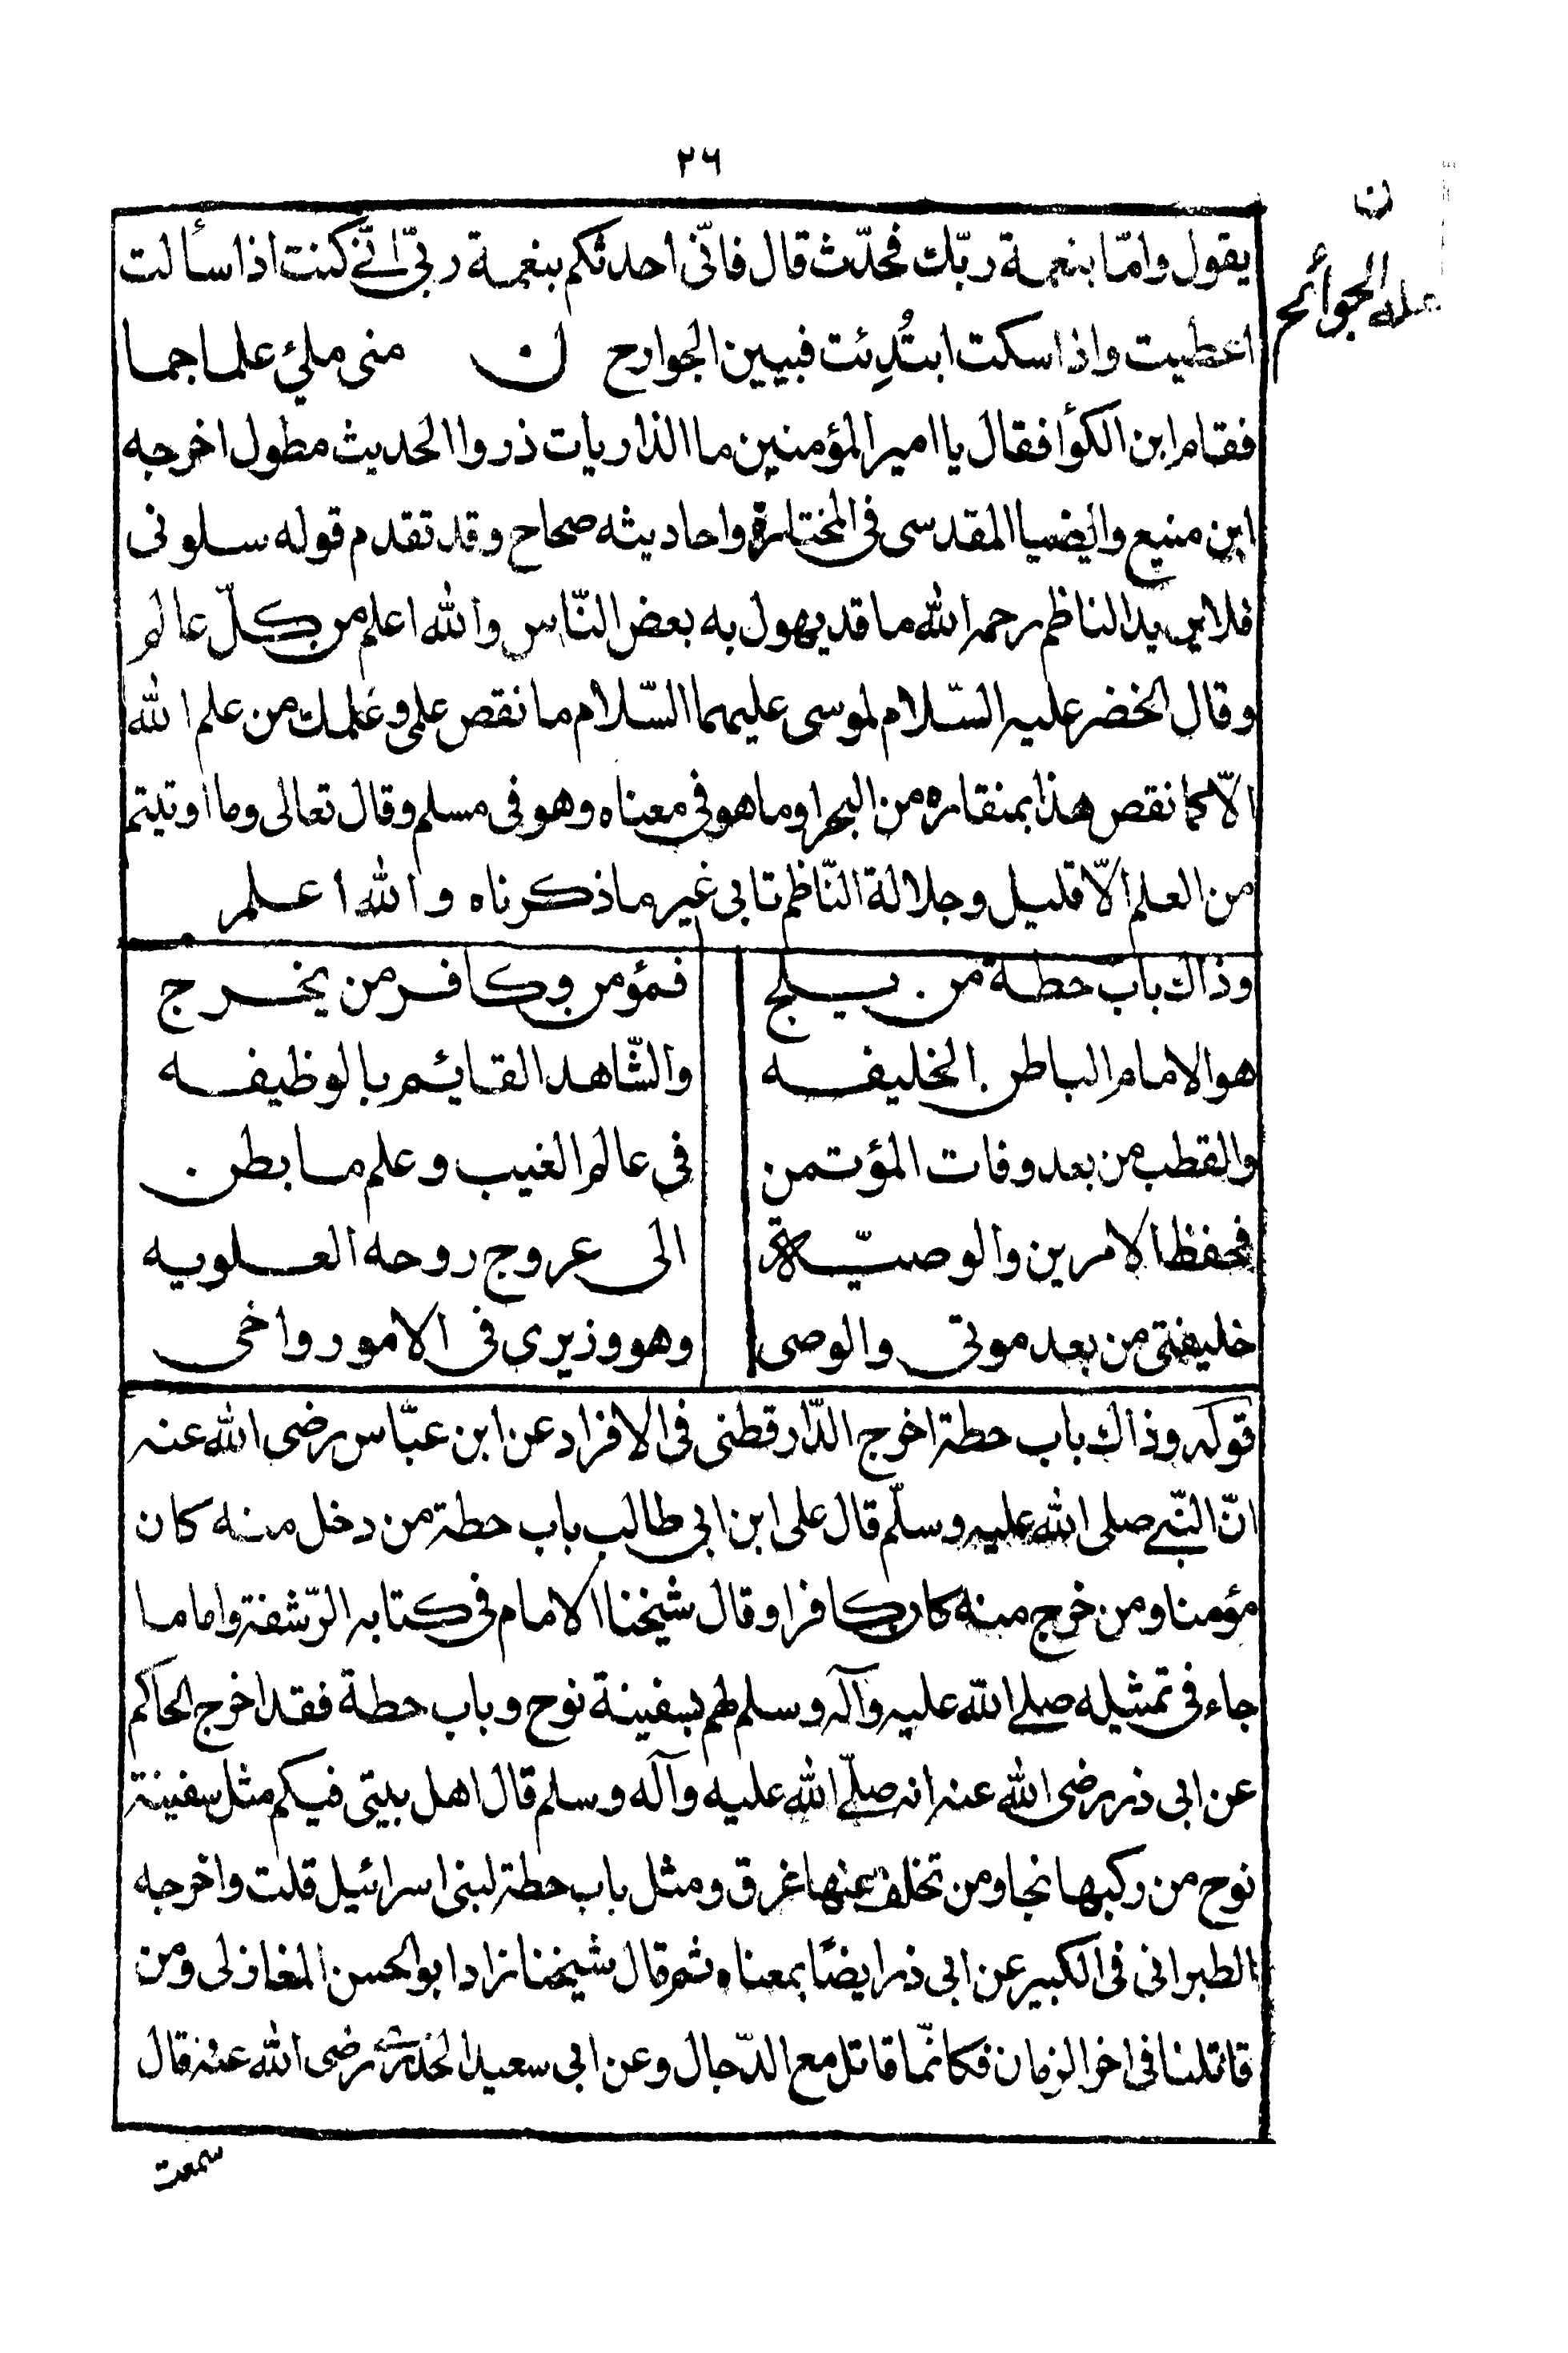 ٢٦
ن
علة الجوائح
يقول وامّا بنعمة ربّك فحدّث قال فانّى احدثكم بنعمة ربّى انّى كنت اذا سألت
اعطيت واذا سكت ابتُدِئت فبيين الجوارح لن منى ملئ علما جما
فقام ابن الكوأ فقال يا امير المؤمنين ما الذاريات ذروا الحديث مطول اخرجه
ابن منيع والضيا المقدسى فى المختارة واحاديثه صحاح وقد تقدم قوله سلونى
فلا يريد الناظم رحمه الله ما قد يهول به بعض النّاس والله اعلم من كلّ عالم
وقال الخضر عليه السّلام لموسى عليهما السّلام ما نقص علمى وعلمك من علم الله
الّا كما نقص هذا بمنقاره من البحر او ما هو فى معناه وهو فى مسلم وقال تعالى وما اوتيتم
من العلم الّا قليل وجلالة النّاظم تابى غير ما ذكرناه والله أعلم
وذاك باب حطة من يلج فمؤمن وكافر من يخرج
هو الامام الباطن الخليفه والشّاهد القايم بالوظيفه
والقطب من بعد وفات المؤتمن فى عالم الغيب وعلم ما بطن
فحفظ الامرين والوصيّة الى عروج روحه العلويه
خليفتى من بعد موتى والوصى وهو وزيرى فى الامور واخى
قوله وذاك باب حطة اخرج الدّارقطنى فى الافراد عن ابن عبّاس رضى الله عنه
انّ النّبى صلى الله عليه وسلّم قال على ابن ابى طالب باب حطة من دخل منه كان
مؤمنا ومن خرج منه كان كافرا وقال شيخنا الامام فى كتابه الرّشفة واما ما
جاء فى تمثيله صلى الله عليه وآله وسلم لهم بسفينة نوح وباب حطة فقد اخرج الحاكم
عن ابى ذر رضى الله عنه انه صلّى الله عليه وآله وسلم قال اهل بيتى فيكم مثل سفينة
نوح من ركبها نجا ومن تخلف عنها غرق ومثل باب حطة لبنى اسرائيل قلت واخرجه
الطبرانى فى الكبير عن ابى ذر ايضًا بمعناه ثم قال شيخنا زاد ابو الحسن المغازلى ومن
قاتلنا فى اخر الزمان فكانّما قاتل مع الدّجال وعن ابى سعيد الخدرى رضى الله عنه قال
سمعت